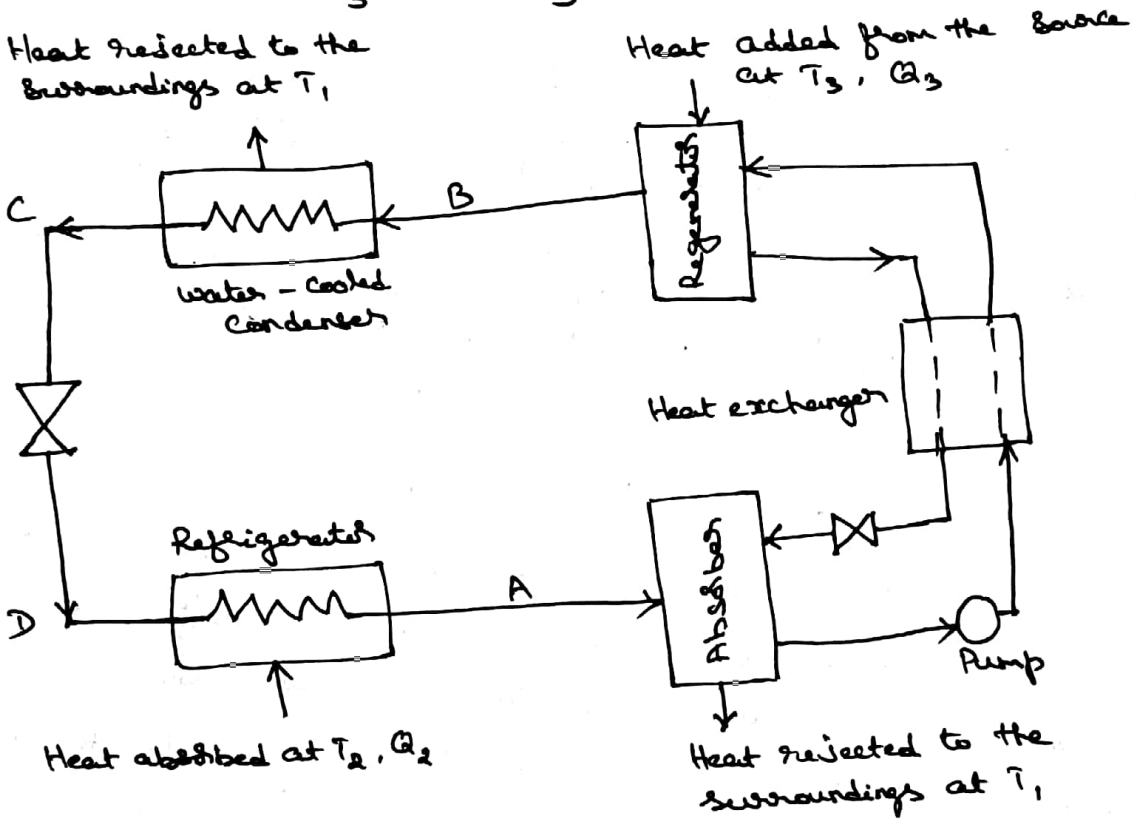 Heat rejected to the
surroundings at T1
Heat added from the source
at T3, Q3
Regenerator
B
C
Water - cooled
Condenser
Heat exchanger
Refrigerator
A
Absorber
D
Pump
Heat absorbed at T2, Q2
Heat rejected to the
surroundings at T1